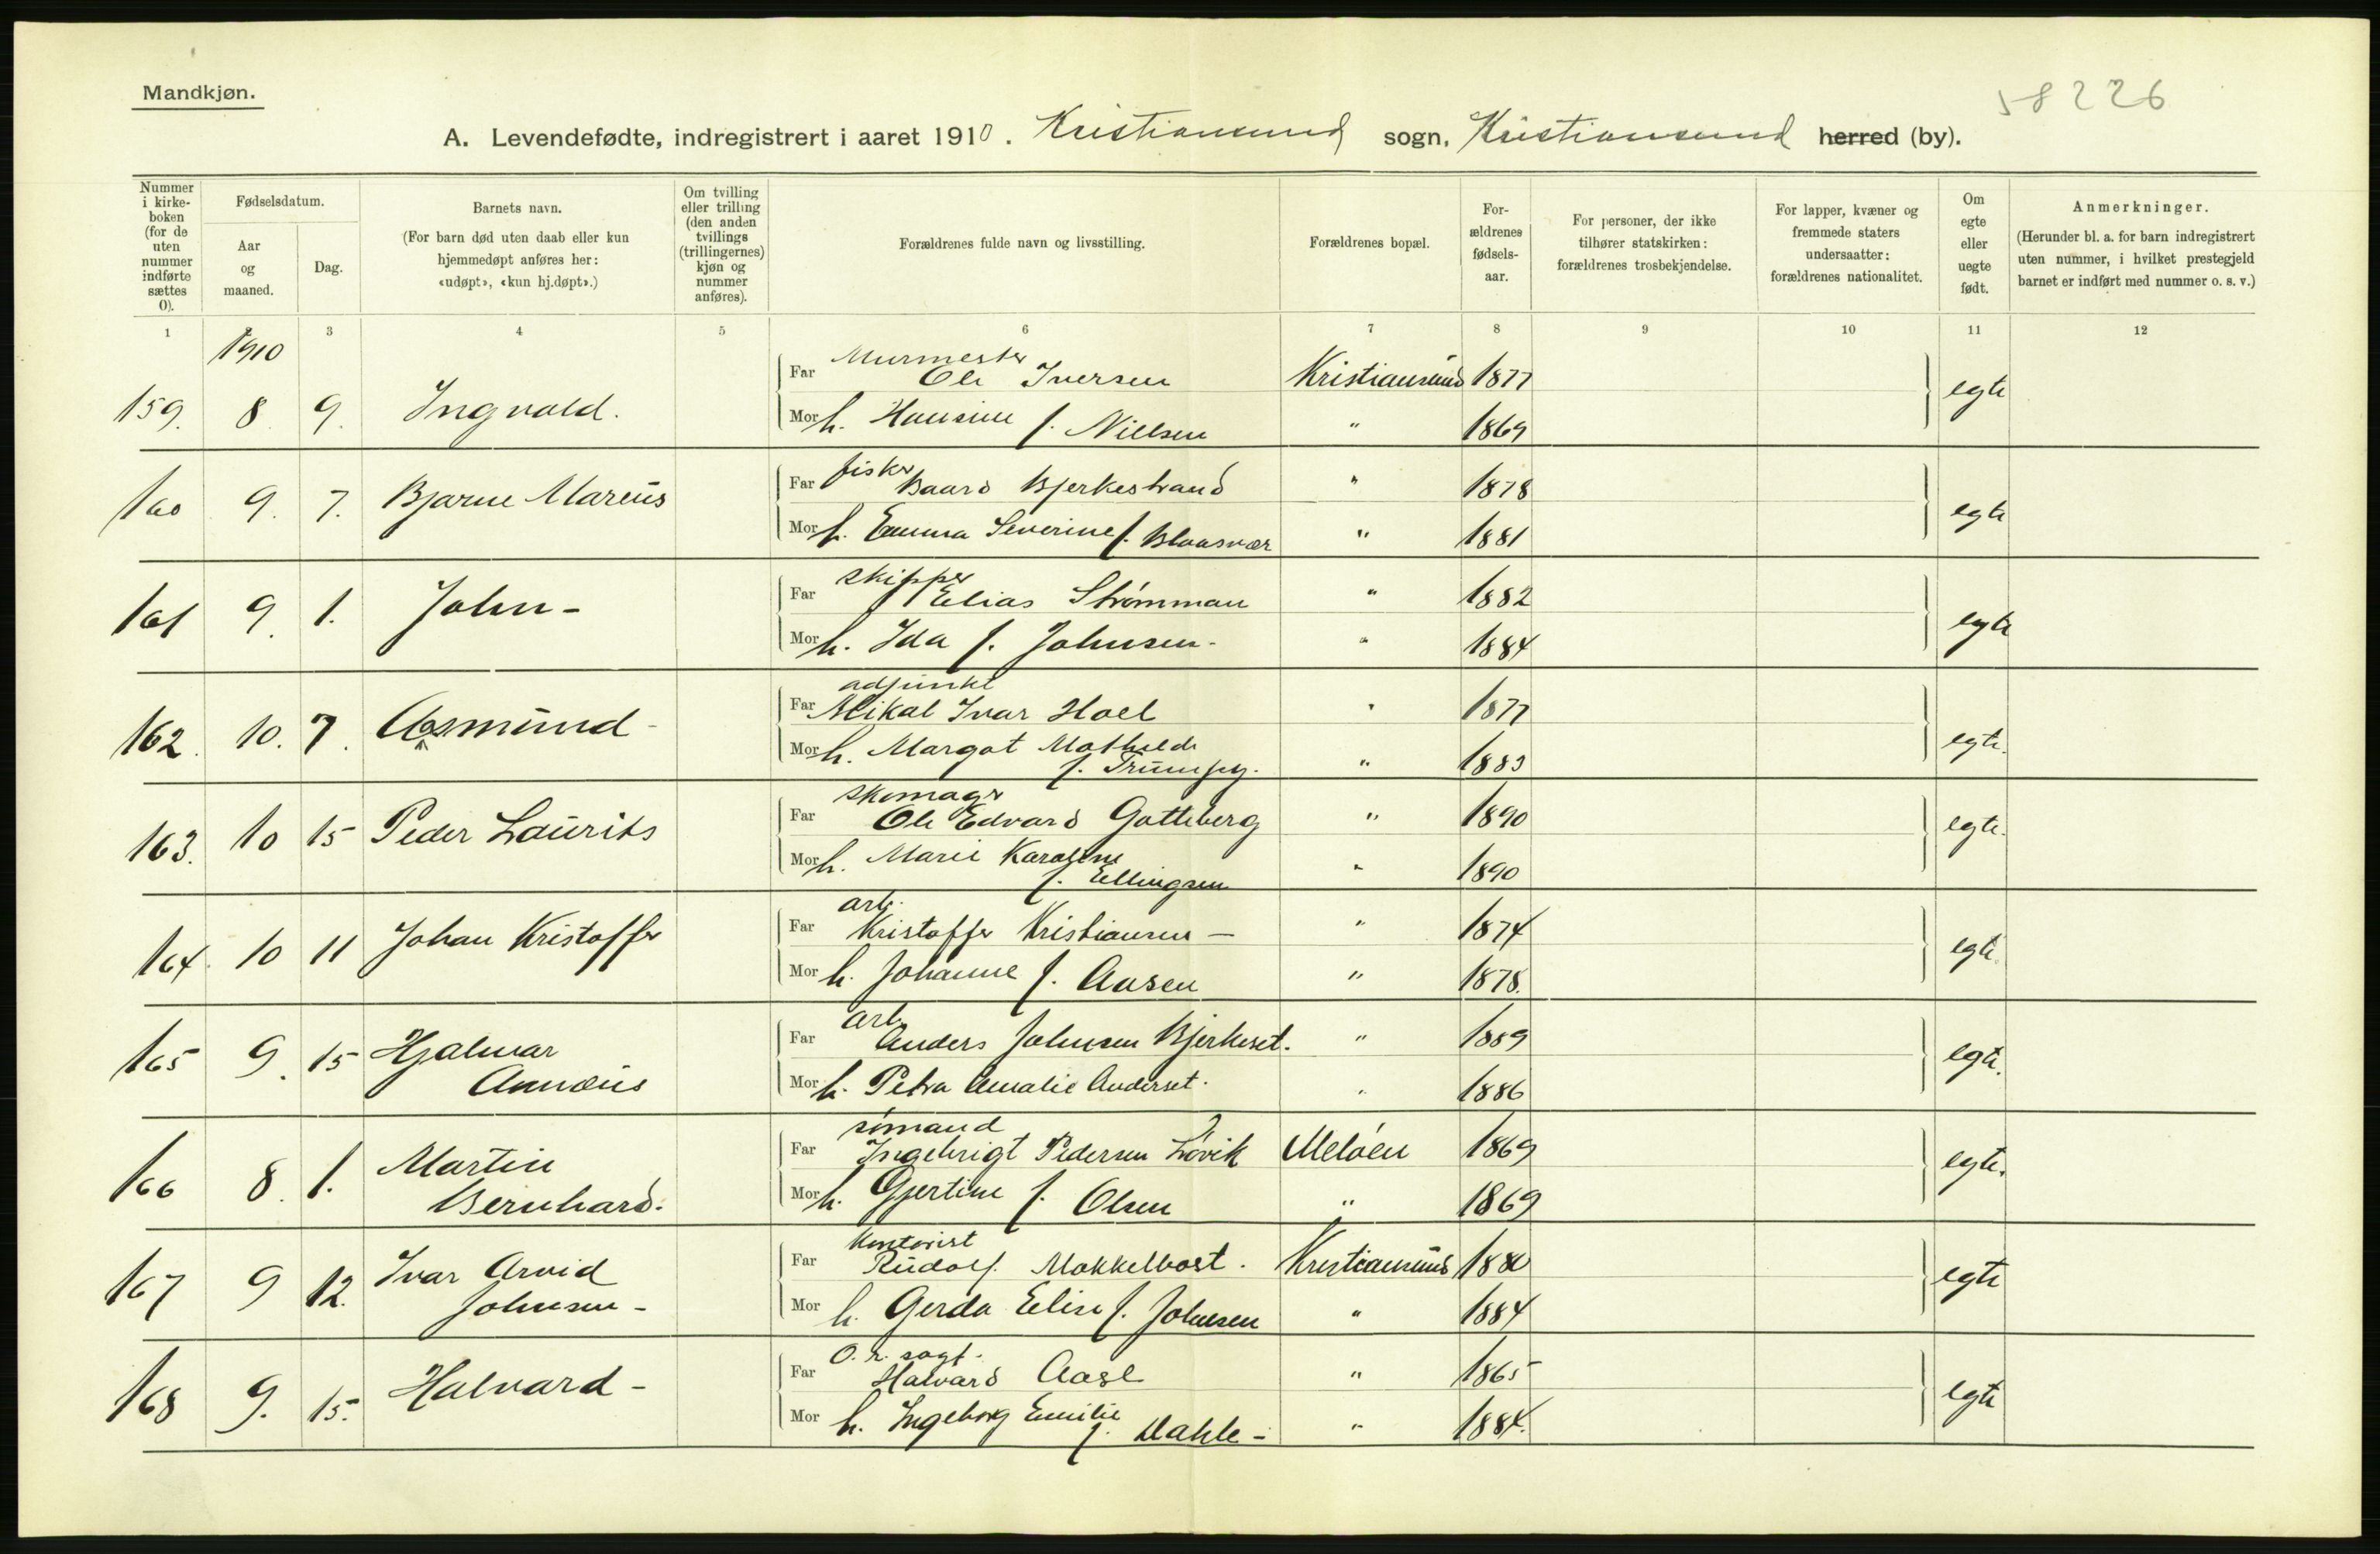 Mandkjøn.
58226
A. Levendefødte, indregistrert i aaret 1910. Kristiansund sogn, Kristiansund herred (by).
Nummer i kirkeboken (for de uten nummer indførte sættes 0).
Fødselsdatum.
Aar og maaned.
Dag.
Barnets navn.
(For barn død uten daab eller kun hjemmedøpt anføres her: «udøpt», «kun hj.døpt».)
Om tvilling eller trilling (den anden tvillings (trillingernes) kjøn og nummer anføres).
Forældrenes fulde navn og livsstilling.
Forældrenes bopæl.
Forældrenes fødselsaar.
For personer, der ikke tilhører statskirken: forældrenes trosbekjendelse.
For lapper, kvæner og fremmede staters undersaatter: forældrenes nationalitet.
Om egte eller uegte født.
Anmerkninger.
(Herunder bl. a. for barn indregistrert uten nummer, i hvilket prestegjeld barnet er indført med nummer o. s. v.)
1 2 3 4 5 6 7 8 9 10 11 12
1910
Murmester
159. 8. 9. Ingvald. Far Ole Iversen Kristiansund 1877 egte
Mor h. Hansine f. Nielsen " 1869
160 9. 7. Bjarne Marcus Far fisker Baard Bjerkestrand " 1878 egte
Mor h. Emma Severine f. Blaasvær " 1881
skipper
161 9. 1. John - Far Elias Strømman " 1882 egte
Mor h. Ida f. Johnsen - " 1884
adjunkt
162. 10. 7. Asmund - Far Mikal Ivar Hoel " 1877 egte.
Mor h. Margot Mathilde f. Trumpy. " 1883
skomager
163. 10 15 Peder Laurits Far Ole Edvard Gotteberg " 1890 egte.
Mor h. Marie Karoline f. Ellingsen " 1890
arb.
164. 10 11 Johan Kristoffer Far Kristoffer Kristiansen - " 1874 egte.
Mor h. Johanne f. Aasen " 1878.
arb.
165 9. 15 Hjalmar Annæus Far Anders Johnsen Bjerkeset. " 1889 egte.
Mor h. Petra Amalie Anderset. " 1886
sømand
166 8. 1. Martin Bernhard. Far Ingebrigt Pedersen Løvik Meløen 1869 egte.
Mor h. Gjertine f. Olsen " 1869
kontorist
167 9 12. Ivar Arvid Johnsen - Far Rudolf Mokkelbost. Kristiansund 1880 egte
Mor h. Gerda Elise f. Johnsen " 1884
O. r. sagf.
168 9. 15. Halvard - Far Halvard Aase " 1865 egte
Mor h. Ingeborg Emilie f. Dahle - " 1884.